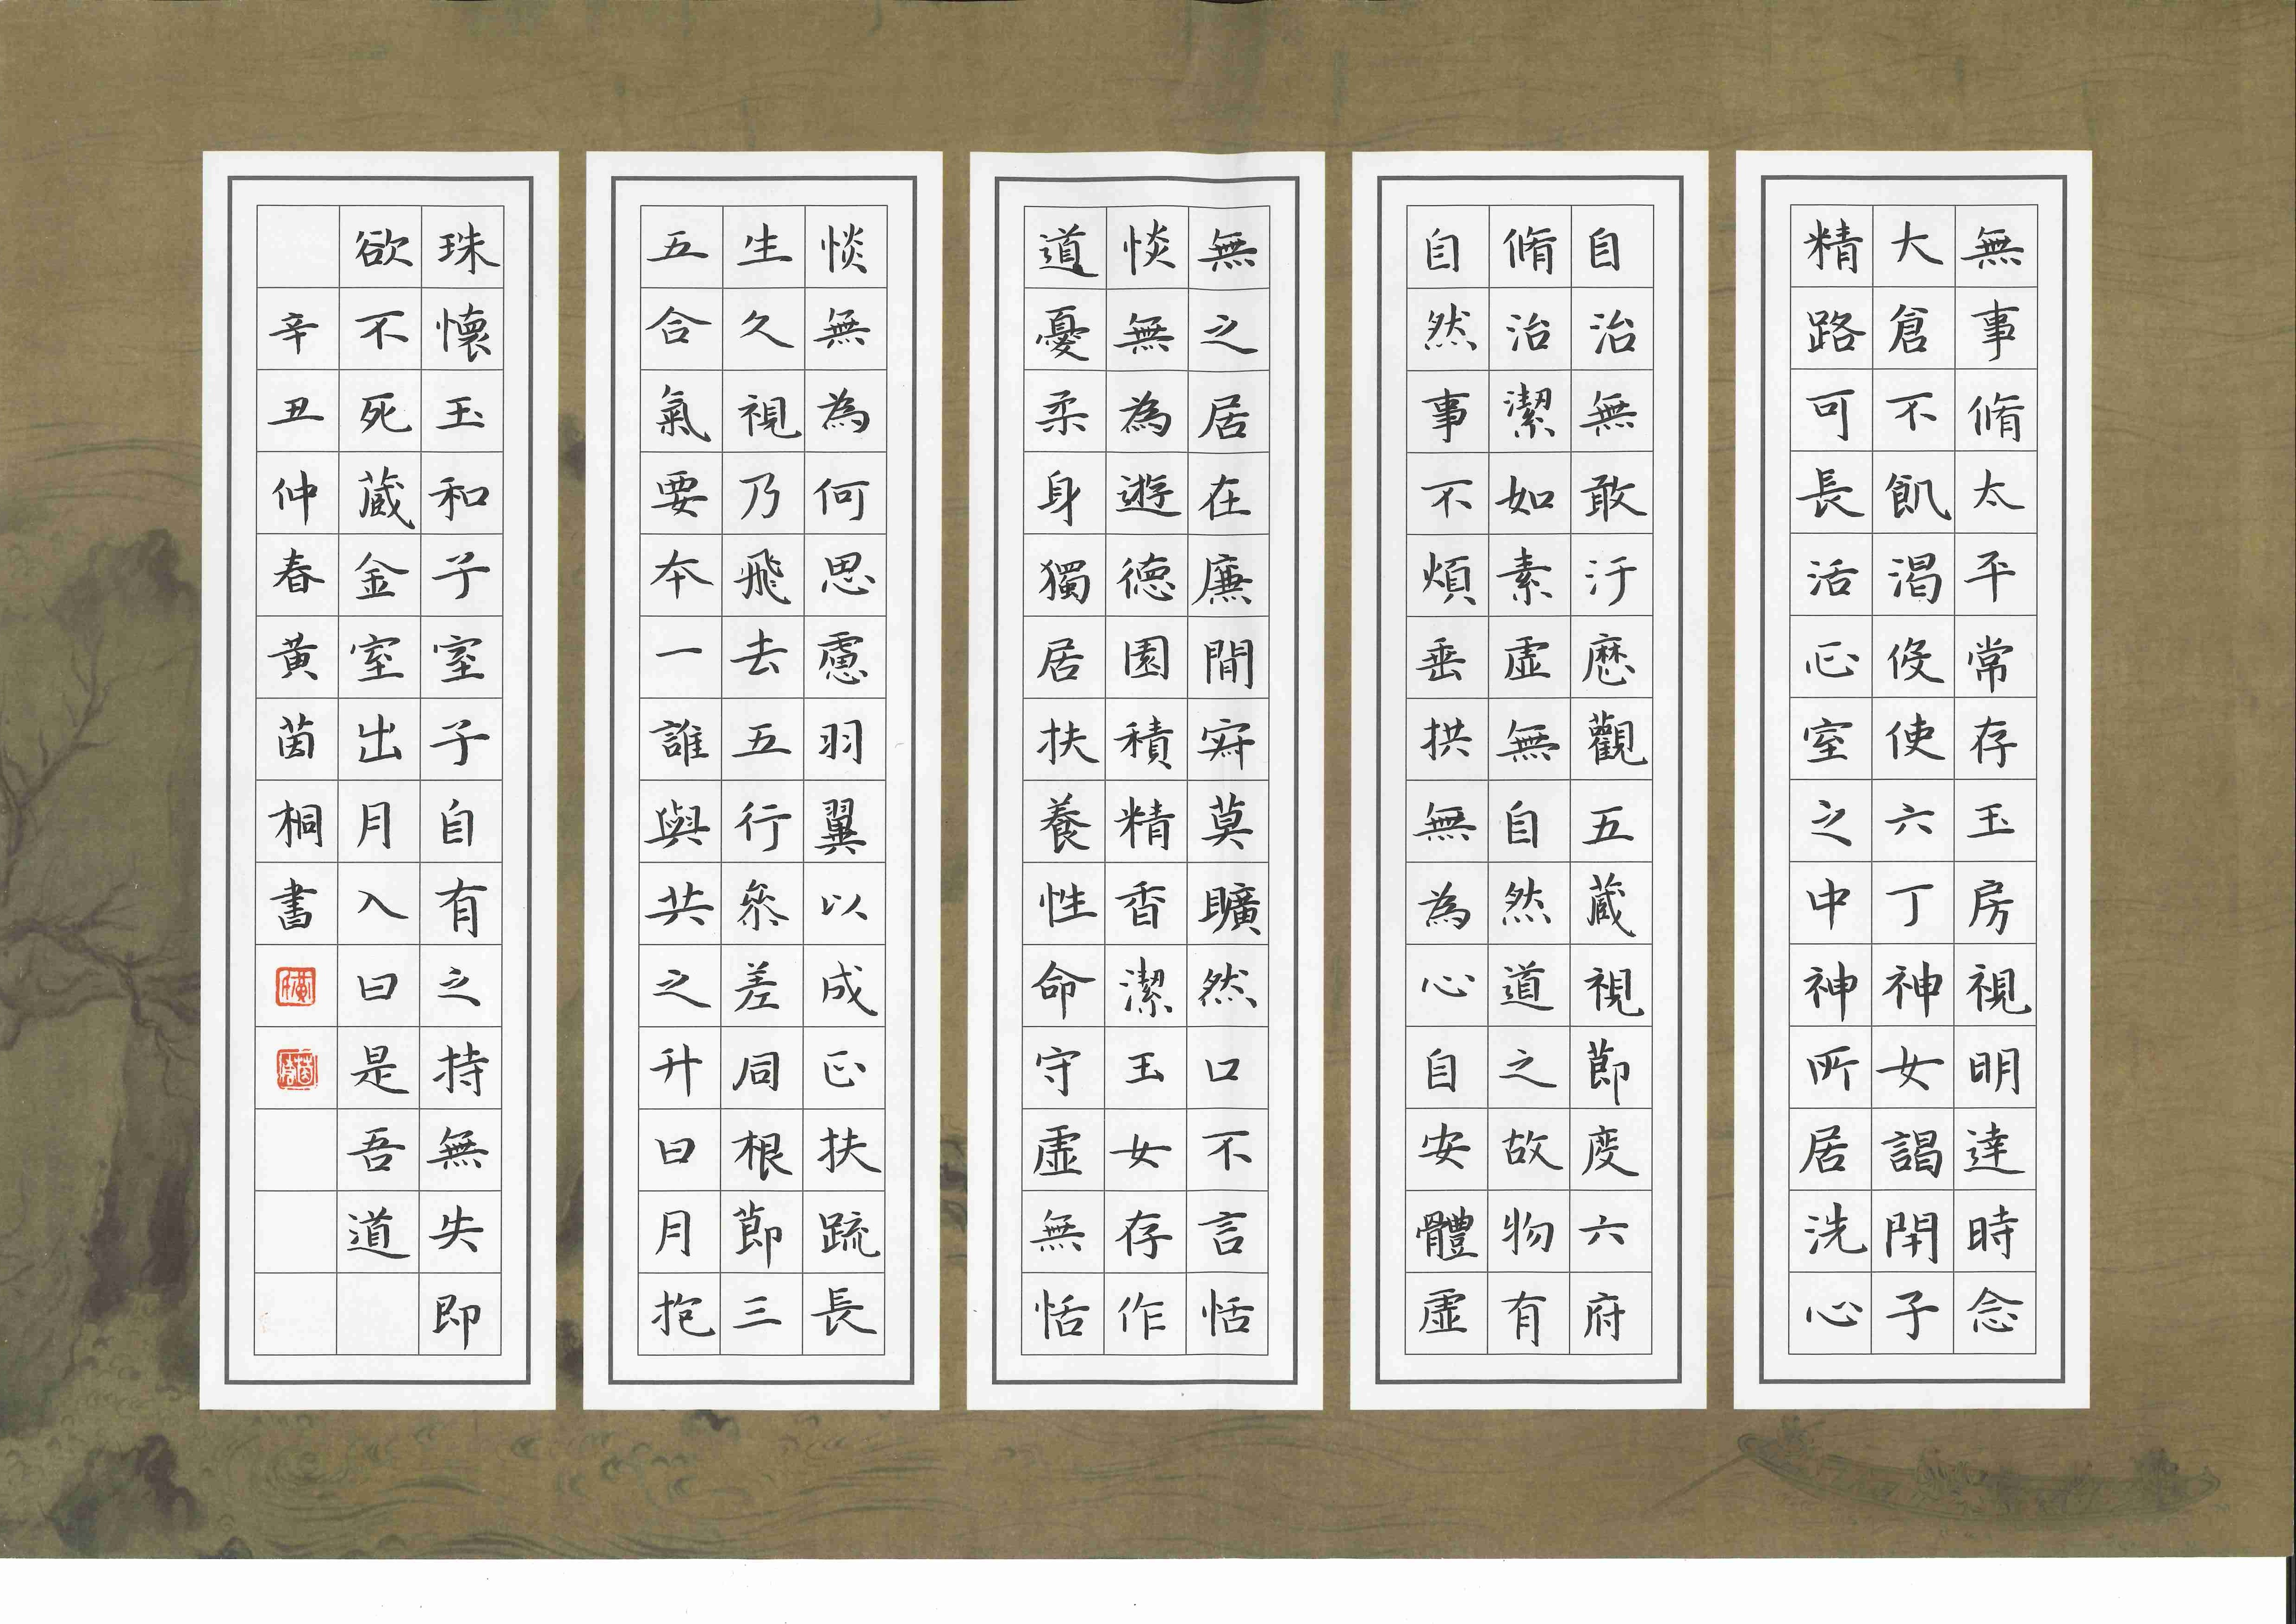 無事脩太平常存玉房視明達時念
大倉不飢渴伇使六丁神女謁閇子
精路可長活正室之中神所居洗心
自治無敢汙歷觀五蔵視節度六府
脩治潔如素虛無自然道之故物有
自然事不煩垂拱無為心自安體虛
無之居在廉間寂莫曠然口不言恬
惔無為遊德園積精香潔玉女存作
道憂柔身獨居扶養性命守虛無恬
惔無為何思慮羽翼以成正扶疏長
生久視乃飛去五行叅差同根節三
五合氣要本一誰與共之升日月抱
珠懷玉和子室子自有之持無失即
欲不死藏金室出月入日是吾道
辛丑仲春黃茵桐書